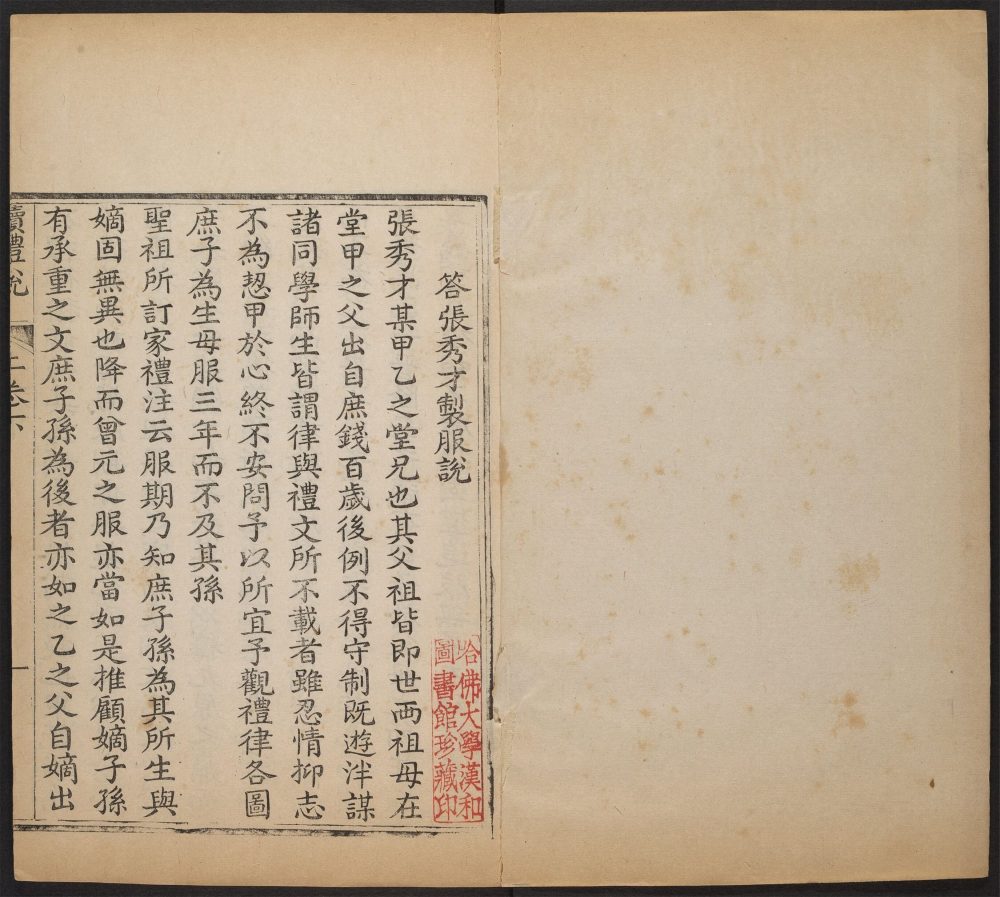 答張秀才製服說
張秀才某甲乙之堂兄也其父祖皆即世兩祖母在
堂甲之父出自庶錢百歲後例不得守制既遊泮謀
諸同學師生皆謂律與禮文所不載者雖忍情抑志
不為愆甲於心終不安問予以所宜予觀禮律各圖
庶子為生母服三年而不及其孫
聖祖所訂家禮注云服期乃知庶子孫為其所生與
嫡固無異也降而曾元之服亦當如是推顧嫡子孫
有承重之文庶子孫為後者亦如之乙之父自嫡出
讀禮說
卷下
一
哈佛大學漢和
圖書館珍藏印